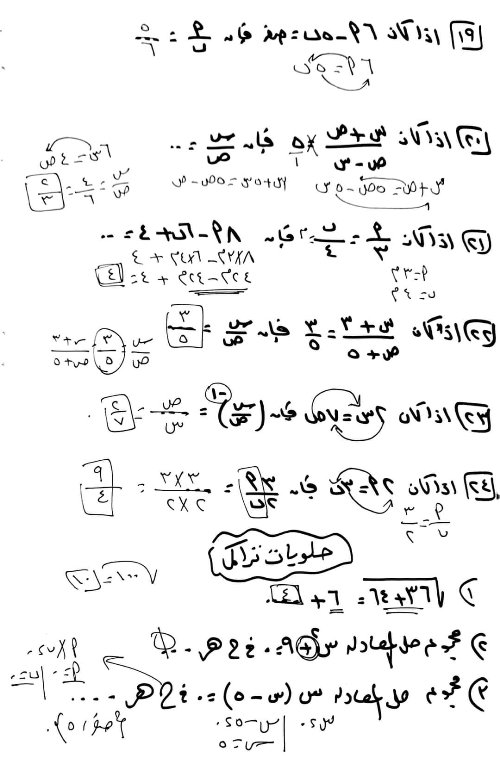 ١٩) اذا كان ٦م - ٥ب = صفر فإن م/ب = ٥/٦
٦م = ٥ب
٢٠) اذا كان (س + ص)/(ص - س) = ٥/١ فإن س/ص = ...
س + ص = ٥ص - ٥س
س + ٥س = ٥ص - ص
٦س = ٤ص
س/ص = ٤/٦ = ٢/٣
٢١) اذا كان م/٣ = ب/٤ = م فإن ٨م - ٦ب + ٤ = ...
م = ٣م
ب = ٤م
٨×٣م - ٦×٤م + ٤
٢٤م - ٢٤م + ٤ = ٤
٢٢) اذا كان (س + ٣)/(ص + ٥) = ٣/٥ فإن س/ص = ٣/٥
س/ص = ٣/٥ = (س+٣)/(ص+٥)
٢٣) اذا كان ٢س = ٧ص فإن (س/ص)^-١ = ص/س = ٢/٧
٢٤) اذا كان ٢م = ٣ب فإن ٣م/٢ب = (٣×٣)/(٢×٢) = ٩/٤
م/ب = ٣/٢
حلويات تراكمي
√١٠٠ = ١٠
١) √(٣٦+٦٤) = ٦ + ٤
٢) مجموعة حل المعادلة س² + ٩ = ٠ في ح هي ... ∅
٣) مجموعة حل المعادلة س (س - ٥) = ٠ في ح هي ....
م × ب = ٠
م = ٠ | ب = ٠
س = ٠ | س - ٥ = ٠
س = ٥
{صفر، ٥}